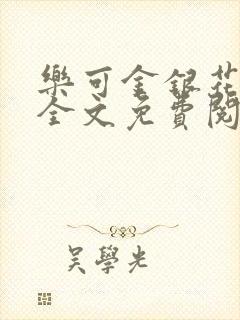 樂可金銀花
全文免費閱
吳學光